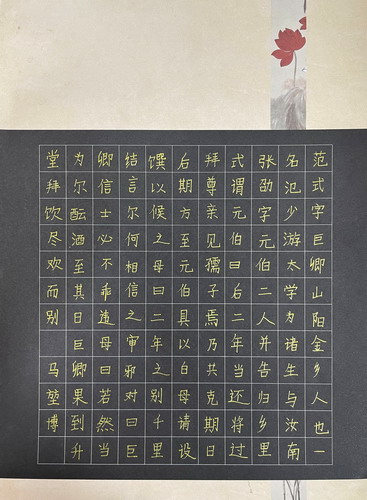 范式字巨卿山阳金乡人也一
名汜少游太学为诸生与汝南
张劭字元伯二人并告归乡里
式谓元伯曰后二年当还将过
拜尊亲见孺子焉乃共克期日
后期方至元伯具以白母请设
馔以候之母曰二年之别千里
结言尔何相信之审邪对曰巨
卿信士必不乖违母曰若然当
为尔酝酒至其日巨卿果到升
堂拜饮尽欢而别
马堃博